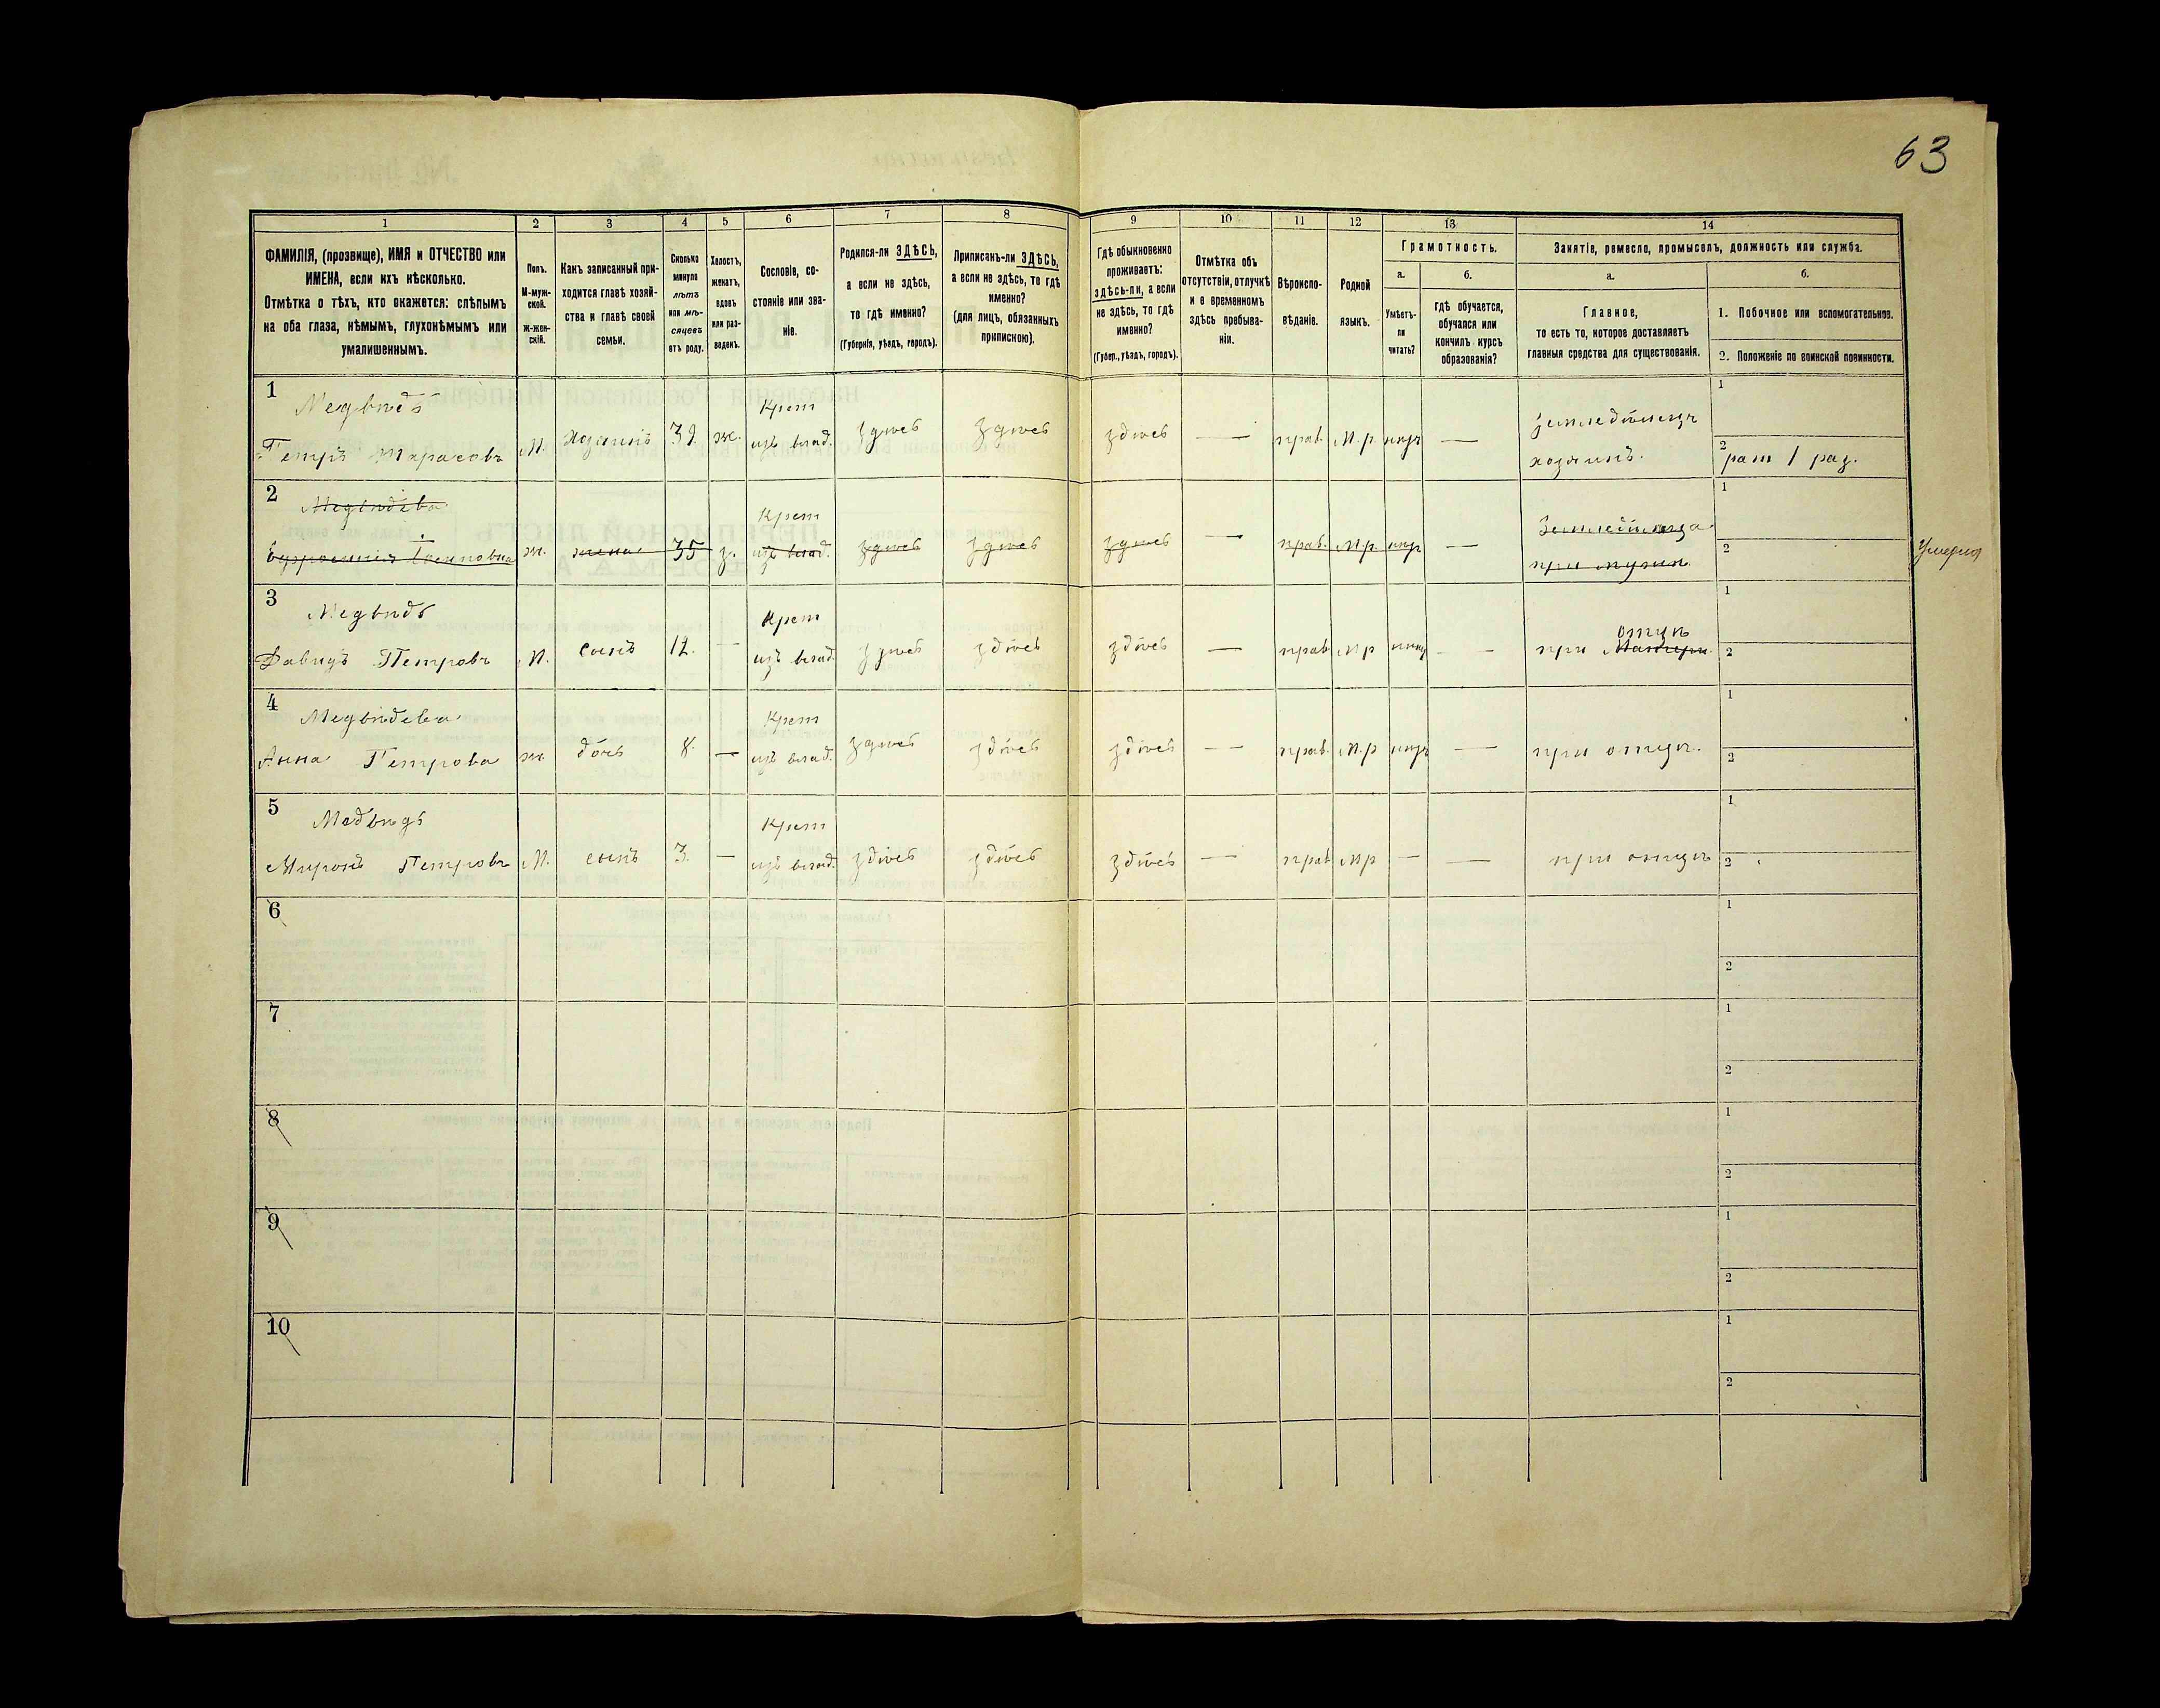 63
1 2 3 4 5 6 7 8 9 10 11 12 13 14
ФАМИЛІЯ, (прозвище), ИМЯ и ОТЧЕСТВО или
ИМЕНА, если ихъ нѣсколько.
Отмѣтка о тѣхъ, кто окажется: слѣпымъ
на оба глаза, нѣмымъ, глухонѣмымъ или
умалишеннымъ.
Полъ.
М-муж-
ской.
Ж-жен-
скій.
Какъ записанный при-
ходится главѣ хозяй-
ства и главѣ своей
семьи.
Сколько
минуло
лѣтъ
или мѣ-
сяцевъ
отъ роду.
Холостъ,
женатъ,
вдовъ
или раз-
веденъ.
Сословіе, со-
стояніе или зва-
ніе.
Родился-ли ЗДѢСЬ,
а если не здѣсь,
то гдѣ именно?
(Губернія, уѣздъ, городъ).
Приписанъ-ли ЗДѢСЬ,
а если не здѣсь, то гдѣ
именно?
(для лицъ, обязанныхъ
припискою).
Гдѣ обыкновенно
проживаетъ:
ЗДѢСЬ-ЛИ, а если
не здѣсь, то гдѣ
именно?
(Губер., уѣздъ, городъ).
Отмѣтка объ
отсутствіи, отлучкѣ
и о временномъ
здѣсь пребыва-
ніи.
Вѣроиспо-
вѣданіе.
Родной
языкъ.
Грамотность.
а. б.
Умѣетъ-
ли
читать?
гдѣ обучается,
обучался или
кончилъ курсъ
образованія?
Занятіе, ремесло, промыселъ, должность или служба.
а. б.
Главное,
то есть то, которое доставляетъ
главныя средства для существованія.
1. Побочное или вспомогательное.
2. Положеніе по воинской повинности.
1 Медвидь Крест 1
Петръ Тарасовъ М. хозяинъ 39. ж. изъ влад. здесь здесь здѣсь — прав. М.р. нѣтъ — земледѣлецъ
хозяинъ. 2 рат 1 раз.
2 Медвидева Крест 1
Осиповна ж. жена 35 з. изъ влад. здесь здесь здесь — прав. М.р. нѣт — Земледѣлица
при мужѣ 2 Умерла
3 Медвидь Крест 1
Давидъ Петровъ М. сынъ 12. — изъ влад. здесь здѣсь здѣсь — прав. М р нѣтъ — при Матери отцѣ 2
4 Медвидева Крест 1
Анна Петрова ж. дочь 8. — изъ влад. здесь здѣсь здѣсь — прав. М.р нѣтъ — при отцѣ. 2
5 Медвидь Крест 1
Миронъ Петровъ М. сынъ 3. — изъ влад. здѣсь здѣсь здѣсь — прав М р — — при отцѣ 2
6 1
2
7 1
2
8 1
2
9 1
2
10 1
2